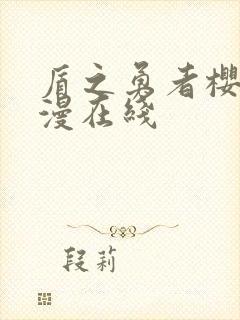 盾之勇者樱
漫在线
段莉